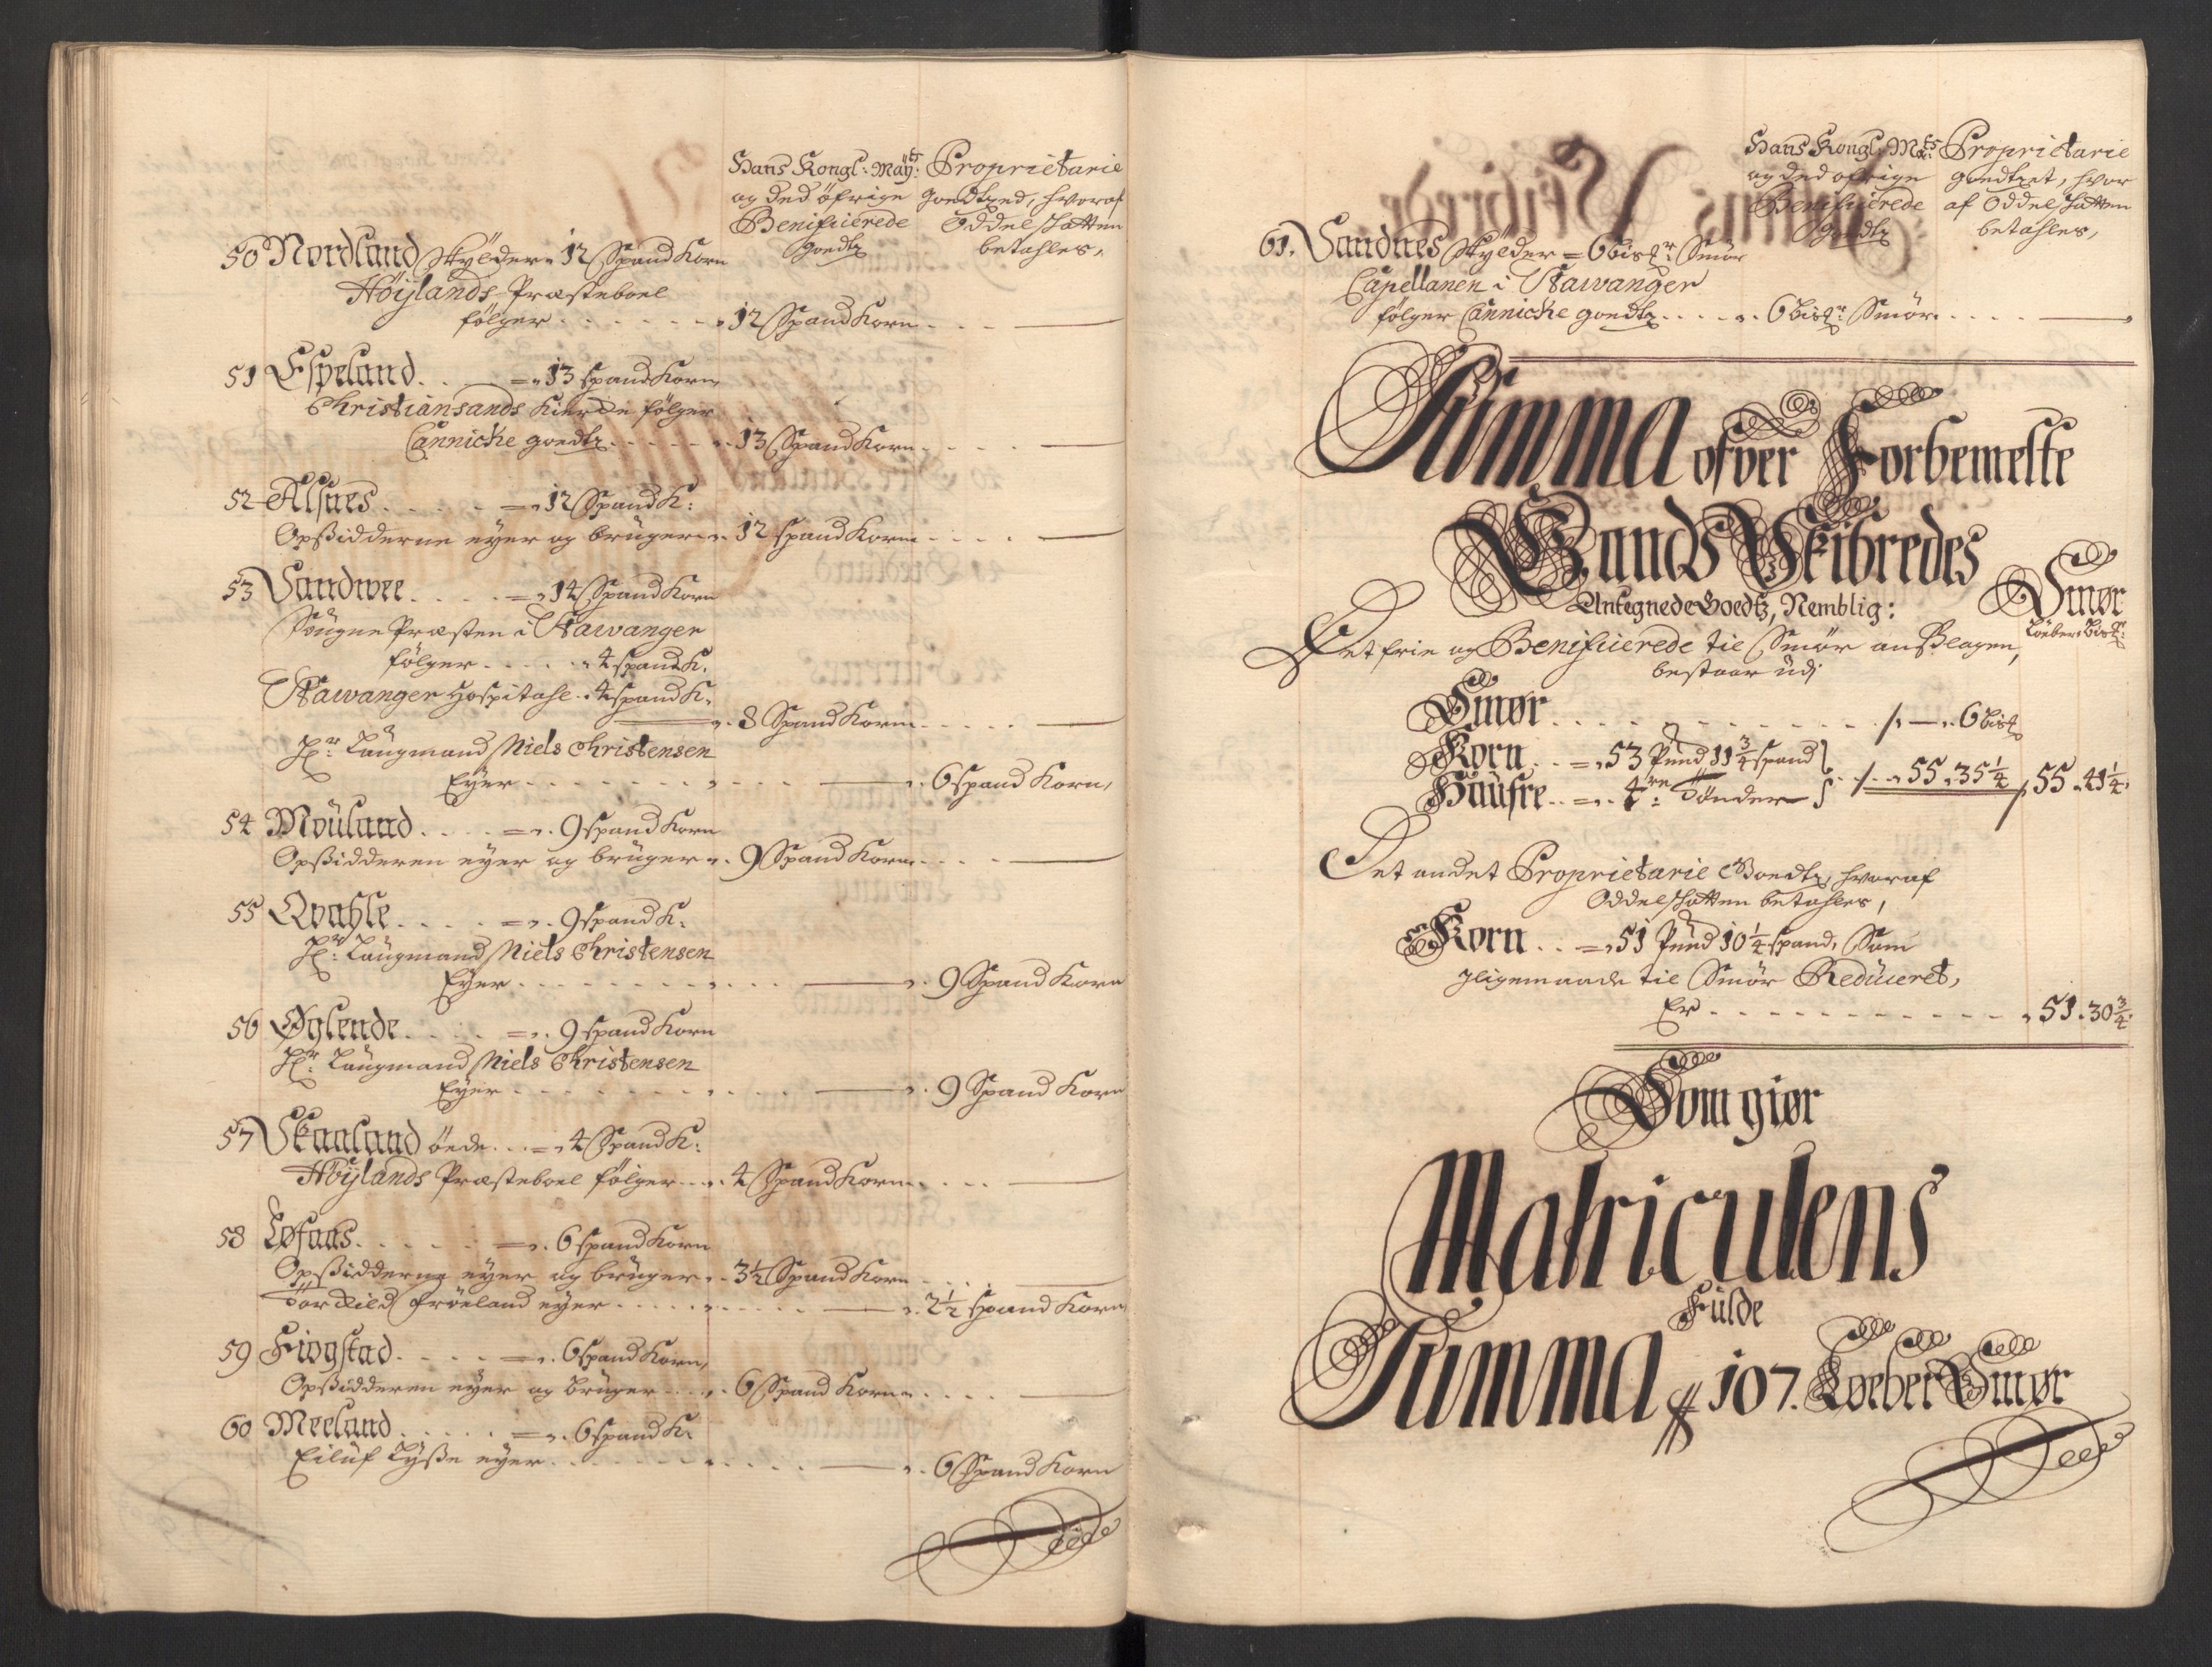 Hans Kongl: Maÿ:ts Proprietarie
og ded öfrige goedtzed, hvoraf
Benificierede Oddel skatten
goedtz betahles,
50 Nordland skÿlder = 12 Spand Korn
Höÿlands Præsteboel
fölger . . . . . 12 Spand Korn
51 Espeland . . . = 13 spand Korn
Christiansands Kierche fölger
Cannicke goedtz . . . . 13 Spand Korn
52 Alsnes . . . . = 12 Spand K:
Opsidderne eÿer og brüger . 12 spand Korn
53 Sandwee . . . . = 14 Spand Korn
Sougne Præsten i Stawanger
fölger . . . . 4 spand K.
Stawanger Hospitahl . 4 spand K.
8 Spand Korn
Hr: Laugmand Niels Christensen
Eÿer . . . . 6 Spand Korn,
54 Möÿland . . . . = 9 spand Korn
Opsidderen eÿer og brüger . 9 Spand Korn
55 Qvahle . . . . = 9 spand K.
Hr: Laugmand Niels Christensen
Eÿer . . . . 9 Spand Korn
56 Øglende . . . = 9 spand Korn
Hr: Laugmand Niels Christensen
Eÿer . . . . 9 Spand Korn
57 Skaaland öede . . . = 4 Spand K:
Höÿlands Præsteboel fölger . . 4 Spand Korn
58 Løfaas . . . . = 6 spand Korn
Opsidderne eÿer og brüger . 3½ Spand Korn
Torkild Fröeland eÿer . . . . 2½ spand Korn
59 Fiogstad . . . . = 6 Spand Korn,
Opsidderen eÿer og brüger . . 6 Spand Korn
60 Meeland . . . . = 6 spand K.
Eiluf Lÿse eÿer . . . . 6 Spand Korn
Hans Kongl: Ma:ts Proprietarie
og ded ofrige goedtzet, hvor
Benificierede af Oddel skatten
goedtz betahles,
61. Sandnes skÿlder = 6 bisp:r Smör
Capellanen i Stawanger
fölger Cannicke goedtz . . . . 6 bisp:r Smör
Summa ofver Forbemelte
Gands Skibredes
Antegnede Goedtz, Nemblig: Smør
Løeber. Bisp:r
Det frie og Benificierede til Smör anslagen,
bestaar udi
Smør . . . . /. — . 6 bisp
Korn . . = 53 Pund 11¾ spand
Häufre . . = 4re Tönder /. . 55 . 35¼ / 55 . 41¼.
Det andet Proprietarie Goedtz, hvoraf
Oddelskatten betahles,
Korn . . = 51 Pund 10¼ spand, Som
ligemaade til Smör Reduceret,
Er . . . . 51 . 30¾.
Som giør
Matriculens
Fulde
Summa // 107. Løeber Smør